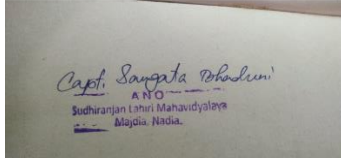 Capt. Sangata Bhaduri
ANO
Sudhiranjan Lahiri Mahavidyalaya
Majdia, Nadia.